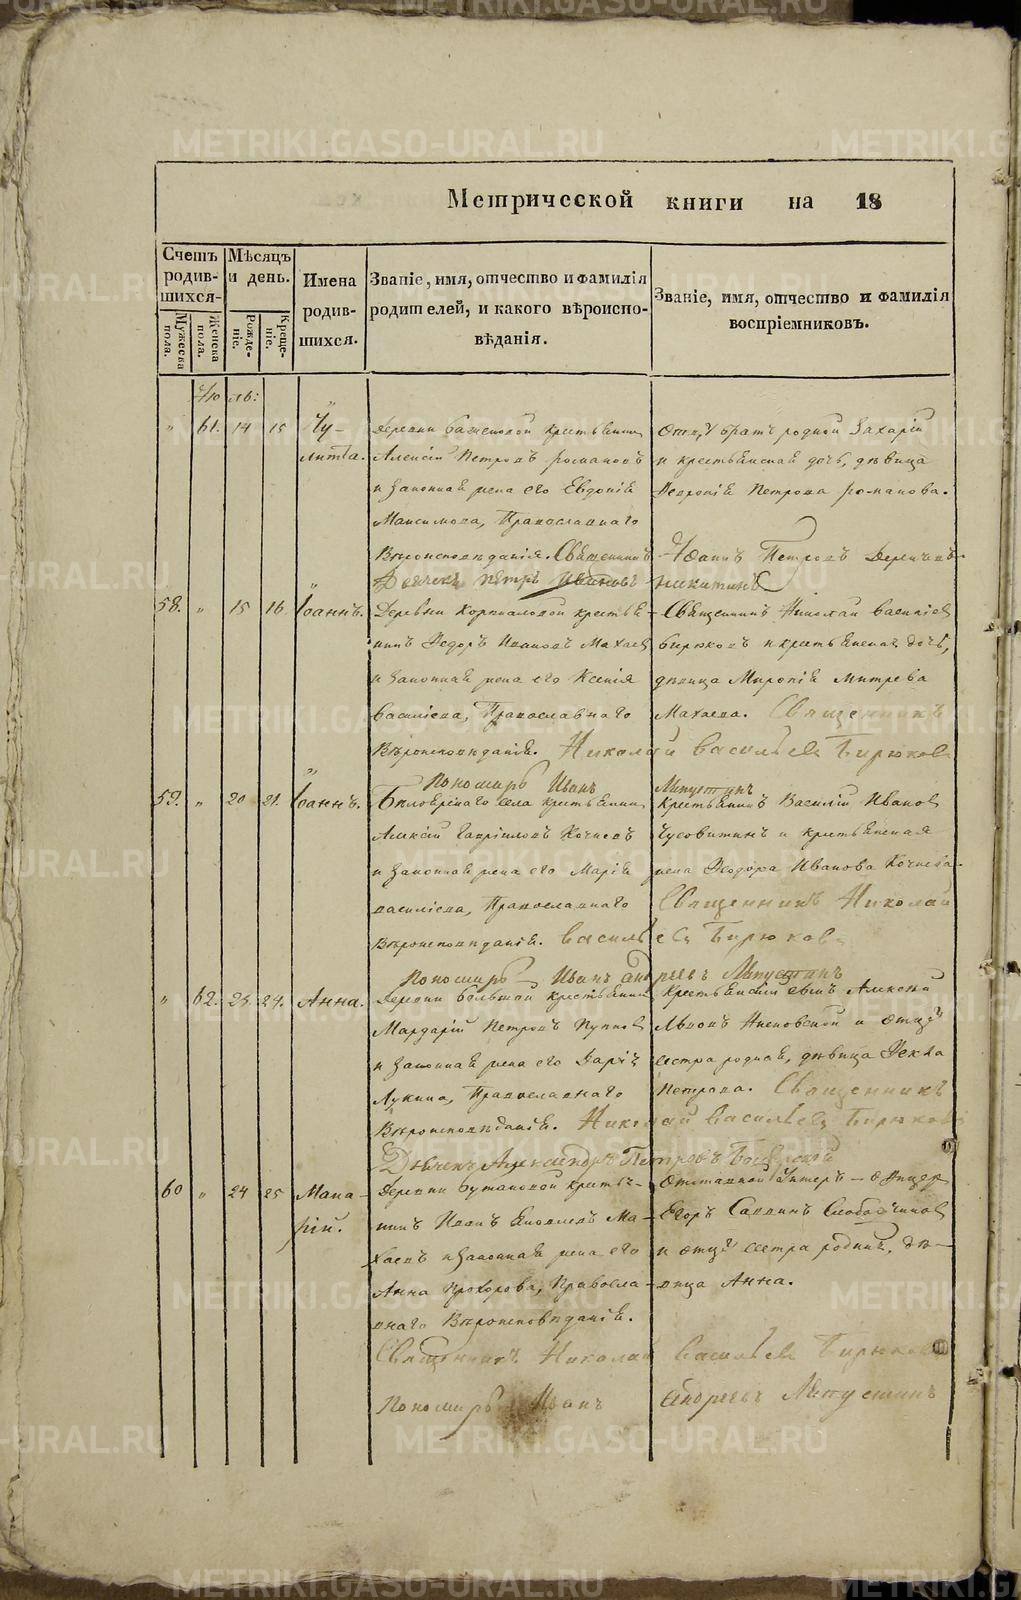 METRIKI.GASO-URAL.RU
Метрической книги на 18
Счетъ родив-шихся
Мужеска пола.
Женска пола.
Мѣсяцъ и день.
Рожде-ніе.
Креще-ніе.
Имена родив-шихся.
Званіе, имя, отчество и фамилія родителей, и какого вѣроиспо-вѣданія.
Званіе, имя, отчество и фамилія воспріемниковъ.
Іюль:
" 61. 14 15 Іу-
литта.
Деревни крестьянинъ
Алексій Петровъ Романовъ
и законная жена его Евдокія
Максимова, Православнаго
Вѣроисповѣданія. Священникъ
Дьячекъ Петръ Ивановъ
отцу братъ родной Захарій
и крестьянская дочь, дѣвица
Петрова Романова.
Іоаннъ Петровъ
Никитинъ
58. " 15 16 Іоаннъ.
Деревни крестья-
нинъ Ѳедоръ Ивановъ Махаев
и законная жена его Ксенія
Василіева, Православнаго
Вѣроисповѣданія. Николай Васильевъ Бирюковъ
Священникъ Николай Василіев
Бирюковъ и крестьянская дочь,
дѣвица Митрева
Махаева. Священникъ
Пономарь Иванъ Липустинъ
59. " 20 21. Іоаннъ.
села крестьянинъ
Алексій Гавріиловъ Кочневъ
и законная жена его Марія
Василіева, Православнаго
Вѣроисповѣданія. Васильевъ Бирюковъ
Крестьянинъ Василій Иванов
Чусовитинъ и крестьянская
жена Ѳеодора Иванова Кочнева.
Священникъ Николай
Пономарь Иванъ Андреевъ Липустинъ
" 62. 23. 24. Анна.
Деревни Большой крестьянинъ
Мардарій Петровъ
и законная жена его Дарія
Лукина, Православнаго
Вѣроисповѣданія. Николай Васильевъ Бирюковъ
Крестьянскій сынъ Алексѣй
и отцу
сестра родная, дѣвица Ѳекла
Петрова. Священникъ
Дьячекъ Александръ Петровъ
60 " 24 25 Мака-
рій.
Деревни крестья-
нинъ Иванъ Яковлевъ Ма-
хаевъ и законная жена его
Анна Прохорова, Правосла-
внаго Вѣроисповѣданія.
Отставной Унтеръ-офицеръ
Егоръ Саввинъ Слободчиков
и отцу сестра родная, дѣ-
вица Анна.
Священникъ Николай Васильевъ Бирюковъ
Пономарь Иванъ Андреевъ Липустинъ